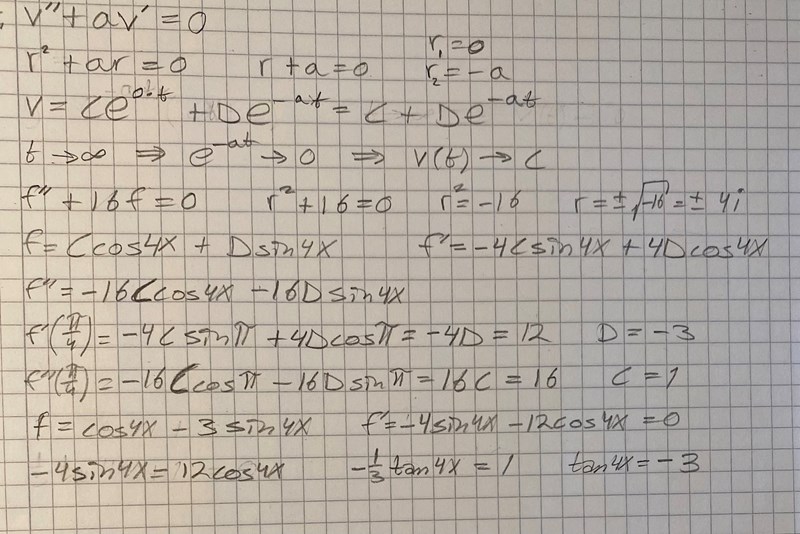 v'' + av' = 0
r² + ar = 0 r + a = 0 r₁ = 0 r₂ = -a
v = Ce^{0·t} + De^{-at} = C + De^{-at}
t → ∞ ⇒ e^{-at} → 0 ⇒ v(t) → C
f'' + 16f = 0 r² + 16 = 0 r² = -16 r = ±√-16 = ± 4i
f = Ccos4x + Dsin4x f' = -4Csin4x + 4Dcos4x
f'' = -16Ccos4x - 16Dsin4x
f'(π/4) = -4Csinπ + 4Dcosπ = -4D = 12 D = -3
f''(π/4) = -16Ccosπ - 16Dsinπ = 16C = 16 C = 1
f = cos4x - 3sin4x f' = -4sin4x - 12cos4x = 0
-4sin4x = 12cos4x -1/3 tan4x = 1 tan4x = -3